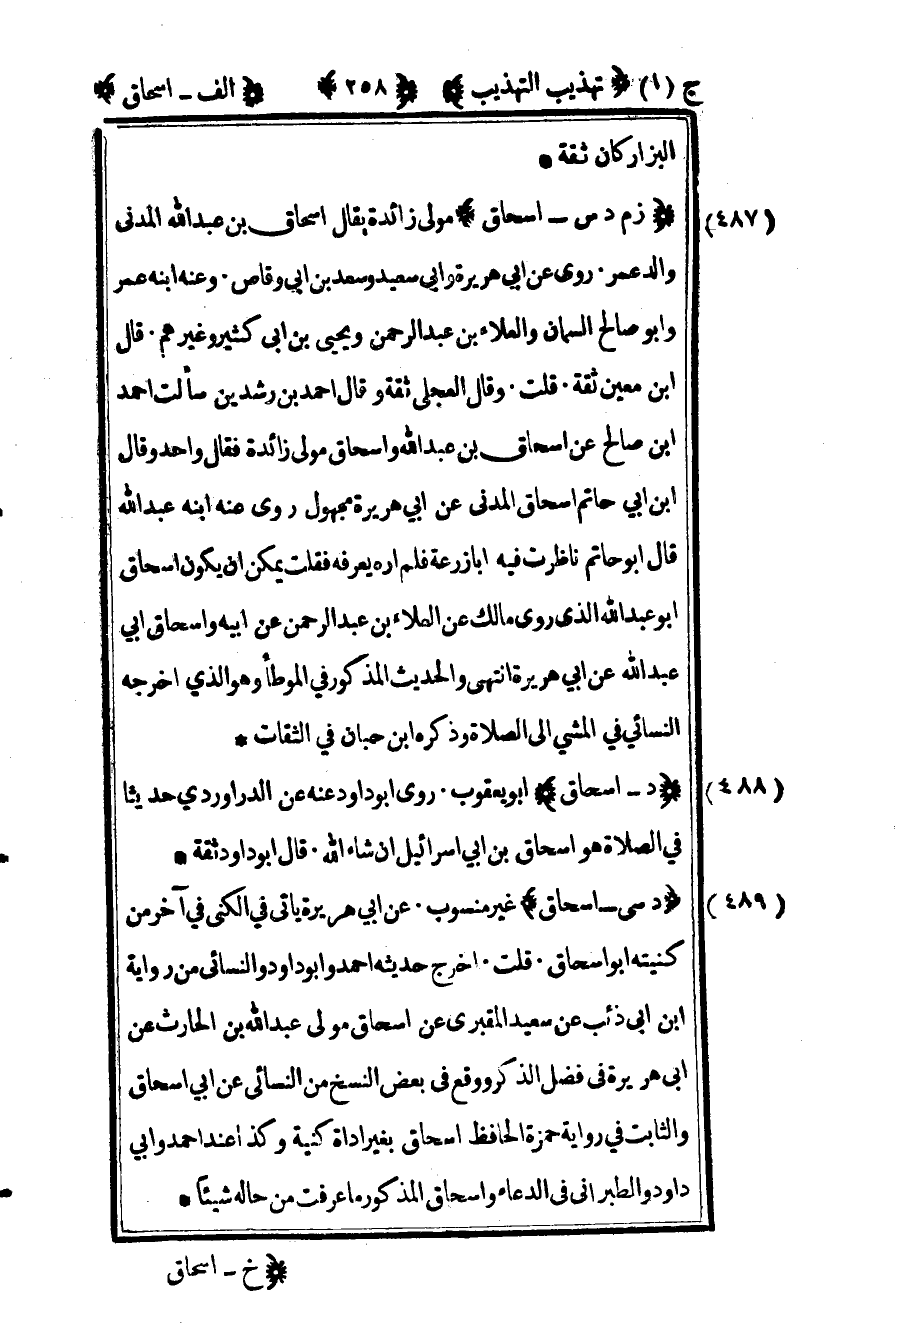 ج (١) ﴿ تهذيب التهذيب ﴾ ﴿ ٢٥٨ ﴾ ﴿ الف ـ اسحاق ﴾
البزار كان ثقة *
(٤٨٧) ﴿ زم د س ـ اسحاق ﴾ مولى زائدة يقال اسحاق بن عبدالله المدنى
والد عمر ٠ روى عن ابي هريرة وابي سعيد وسعد بن ابي وقاص ٠ وعنه ابنه عمر
وابو صالح السمان والعلاء بن عبدالرحمن ويحيى بن ابى كثير وغيرهم ٠ قال
ابن معين ثقة ٠ قلت ٠ وقال العجلى ثقة و قال احمد بن رشدين سألت احمد
ابن صالح عن اسحاق بن عبدالله واسحاق مولى زائدة فقال واحد وقال
ابن ابي حاتم اسحاق المدنى عن ابي هريرة مجهول روى عنه ابنه عبدالله
قال ابو حاتم ناظرت فيه ابازرعة فلم اره يعرفه فقلت يمكن ان يكون اسحاق
ابو عبدالله الذى روى مالك عن العلاء بن عبدالرحمن عن ابيه واسحاق ابي
عبدالله عن ابي هريرة انتهى والحديث المذكور في الموطأ وهو الذي اخرجه
النسائي في المشي الى الصلاة وذكره ابن حبان في الثقات *
(٤٨٨) ﴿ د ـ اسحاق ﴾ ابو يعقوب ٠ روى ابو داود عنه عن الدراوردي حديثا
في الصلاة هو اسحاق بن ابي اسرائيل ان شاء الله ٠ قال ابو داود ثقة *
(٤٨٩) ﴿ د سى ـ اسحاق ﴾ غير منسوب ٠ عن ابي هريرة ياتى في الكنى في آخر من
كنيته ابو اسحاق ٠ قلت ٠ اخرج حديثه احمد وابو داود والنسائى من رواية
ابن ابى ذئب عن سعيد المقبرى عن اسحاق مولى عبدالله بن الحارث عن
ابى هريرة فى فضل الذكر ووقع فى بعض النسخ من النسائى عن ابي اسحاق
والثابت في رواية حمزة الحافظ اسحاق بغير اداة كنية وكذا عند احمد وابي
داود والطبرانى فى الدعاء واسحاق المذكور ما عرفت من حاله شيئا *
﴿ خ ـ اسحاق